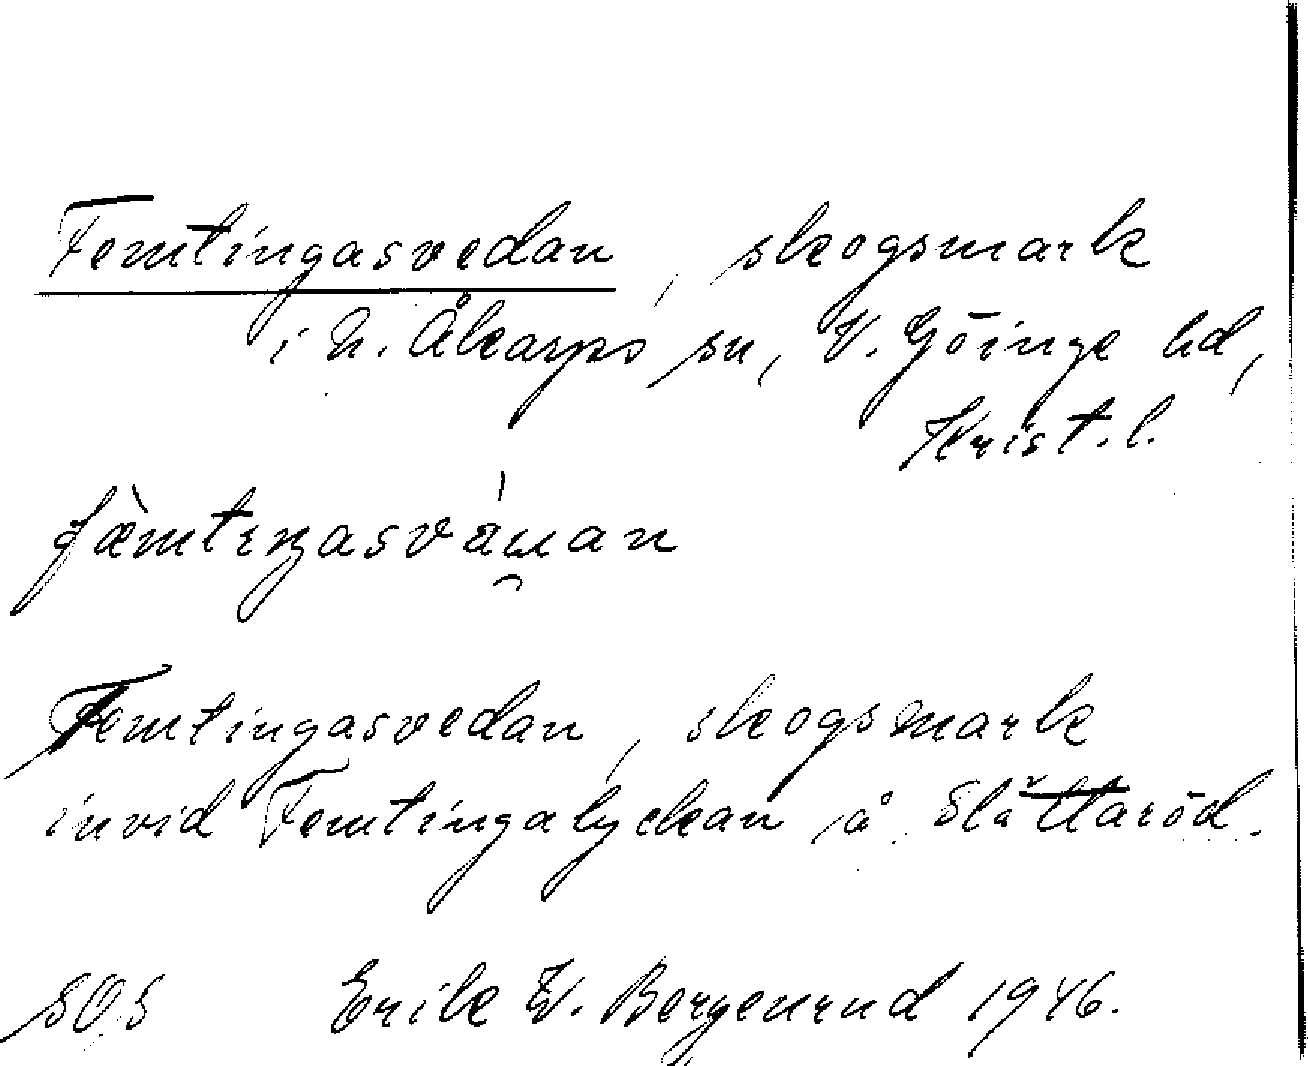 Femtingasvedan, skogsmark
i N. Åkarps sn, V. Göinge hd,
Krist. l.
Femtingasvedan, skogsmark
invid Femtingalyckan å Slättaröd.
SOS Erik W. Bergenrud 1946.